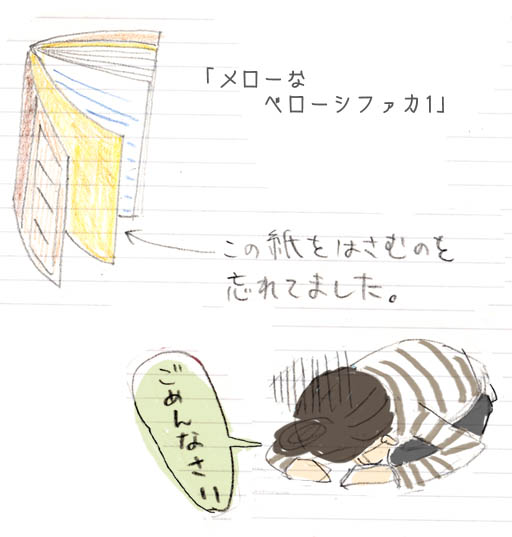 「メローな
ベローシファカ1」
この紙をはさむのを
忘れてました。
ごめんなさい